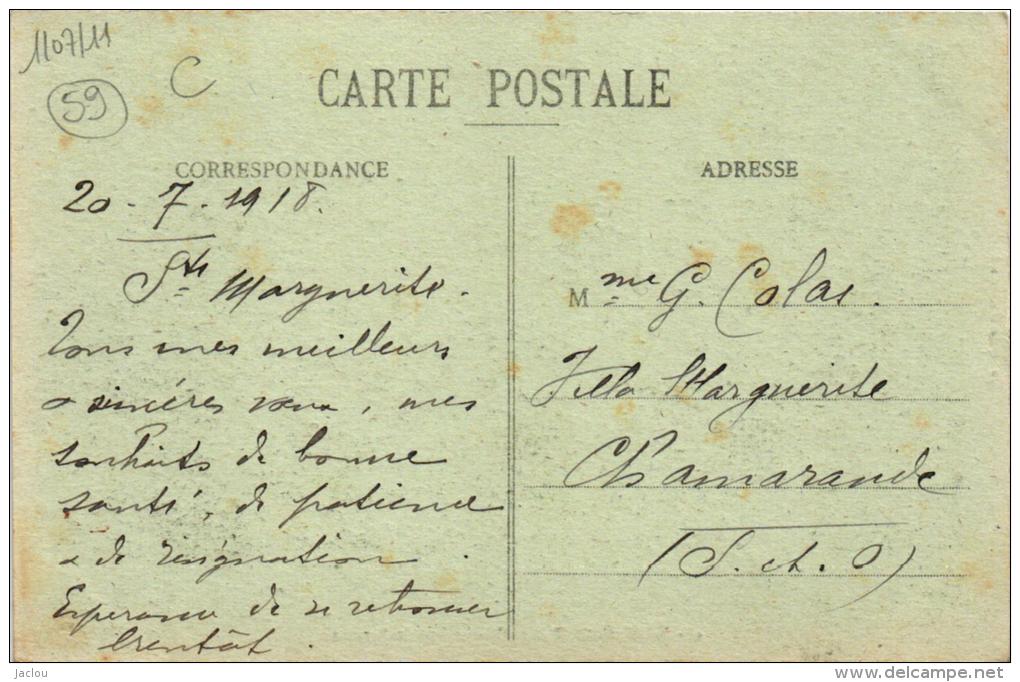 1107/11
59
C
CARTE POSTALE
CORRESPONDANCE
20 - 7 - 1918.
Ste Marguerite.
Tous mes meilleurs
& sincères vœux, mes
souhaits de bonne
santé, de patience
& de résignation.
Esperance de se retrouver
bientôt.
ADRESSE
Mme G. Colas.
Villa Marguerite
Chamarande
(S. et. O)
jaclou
www.delcampe.net